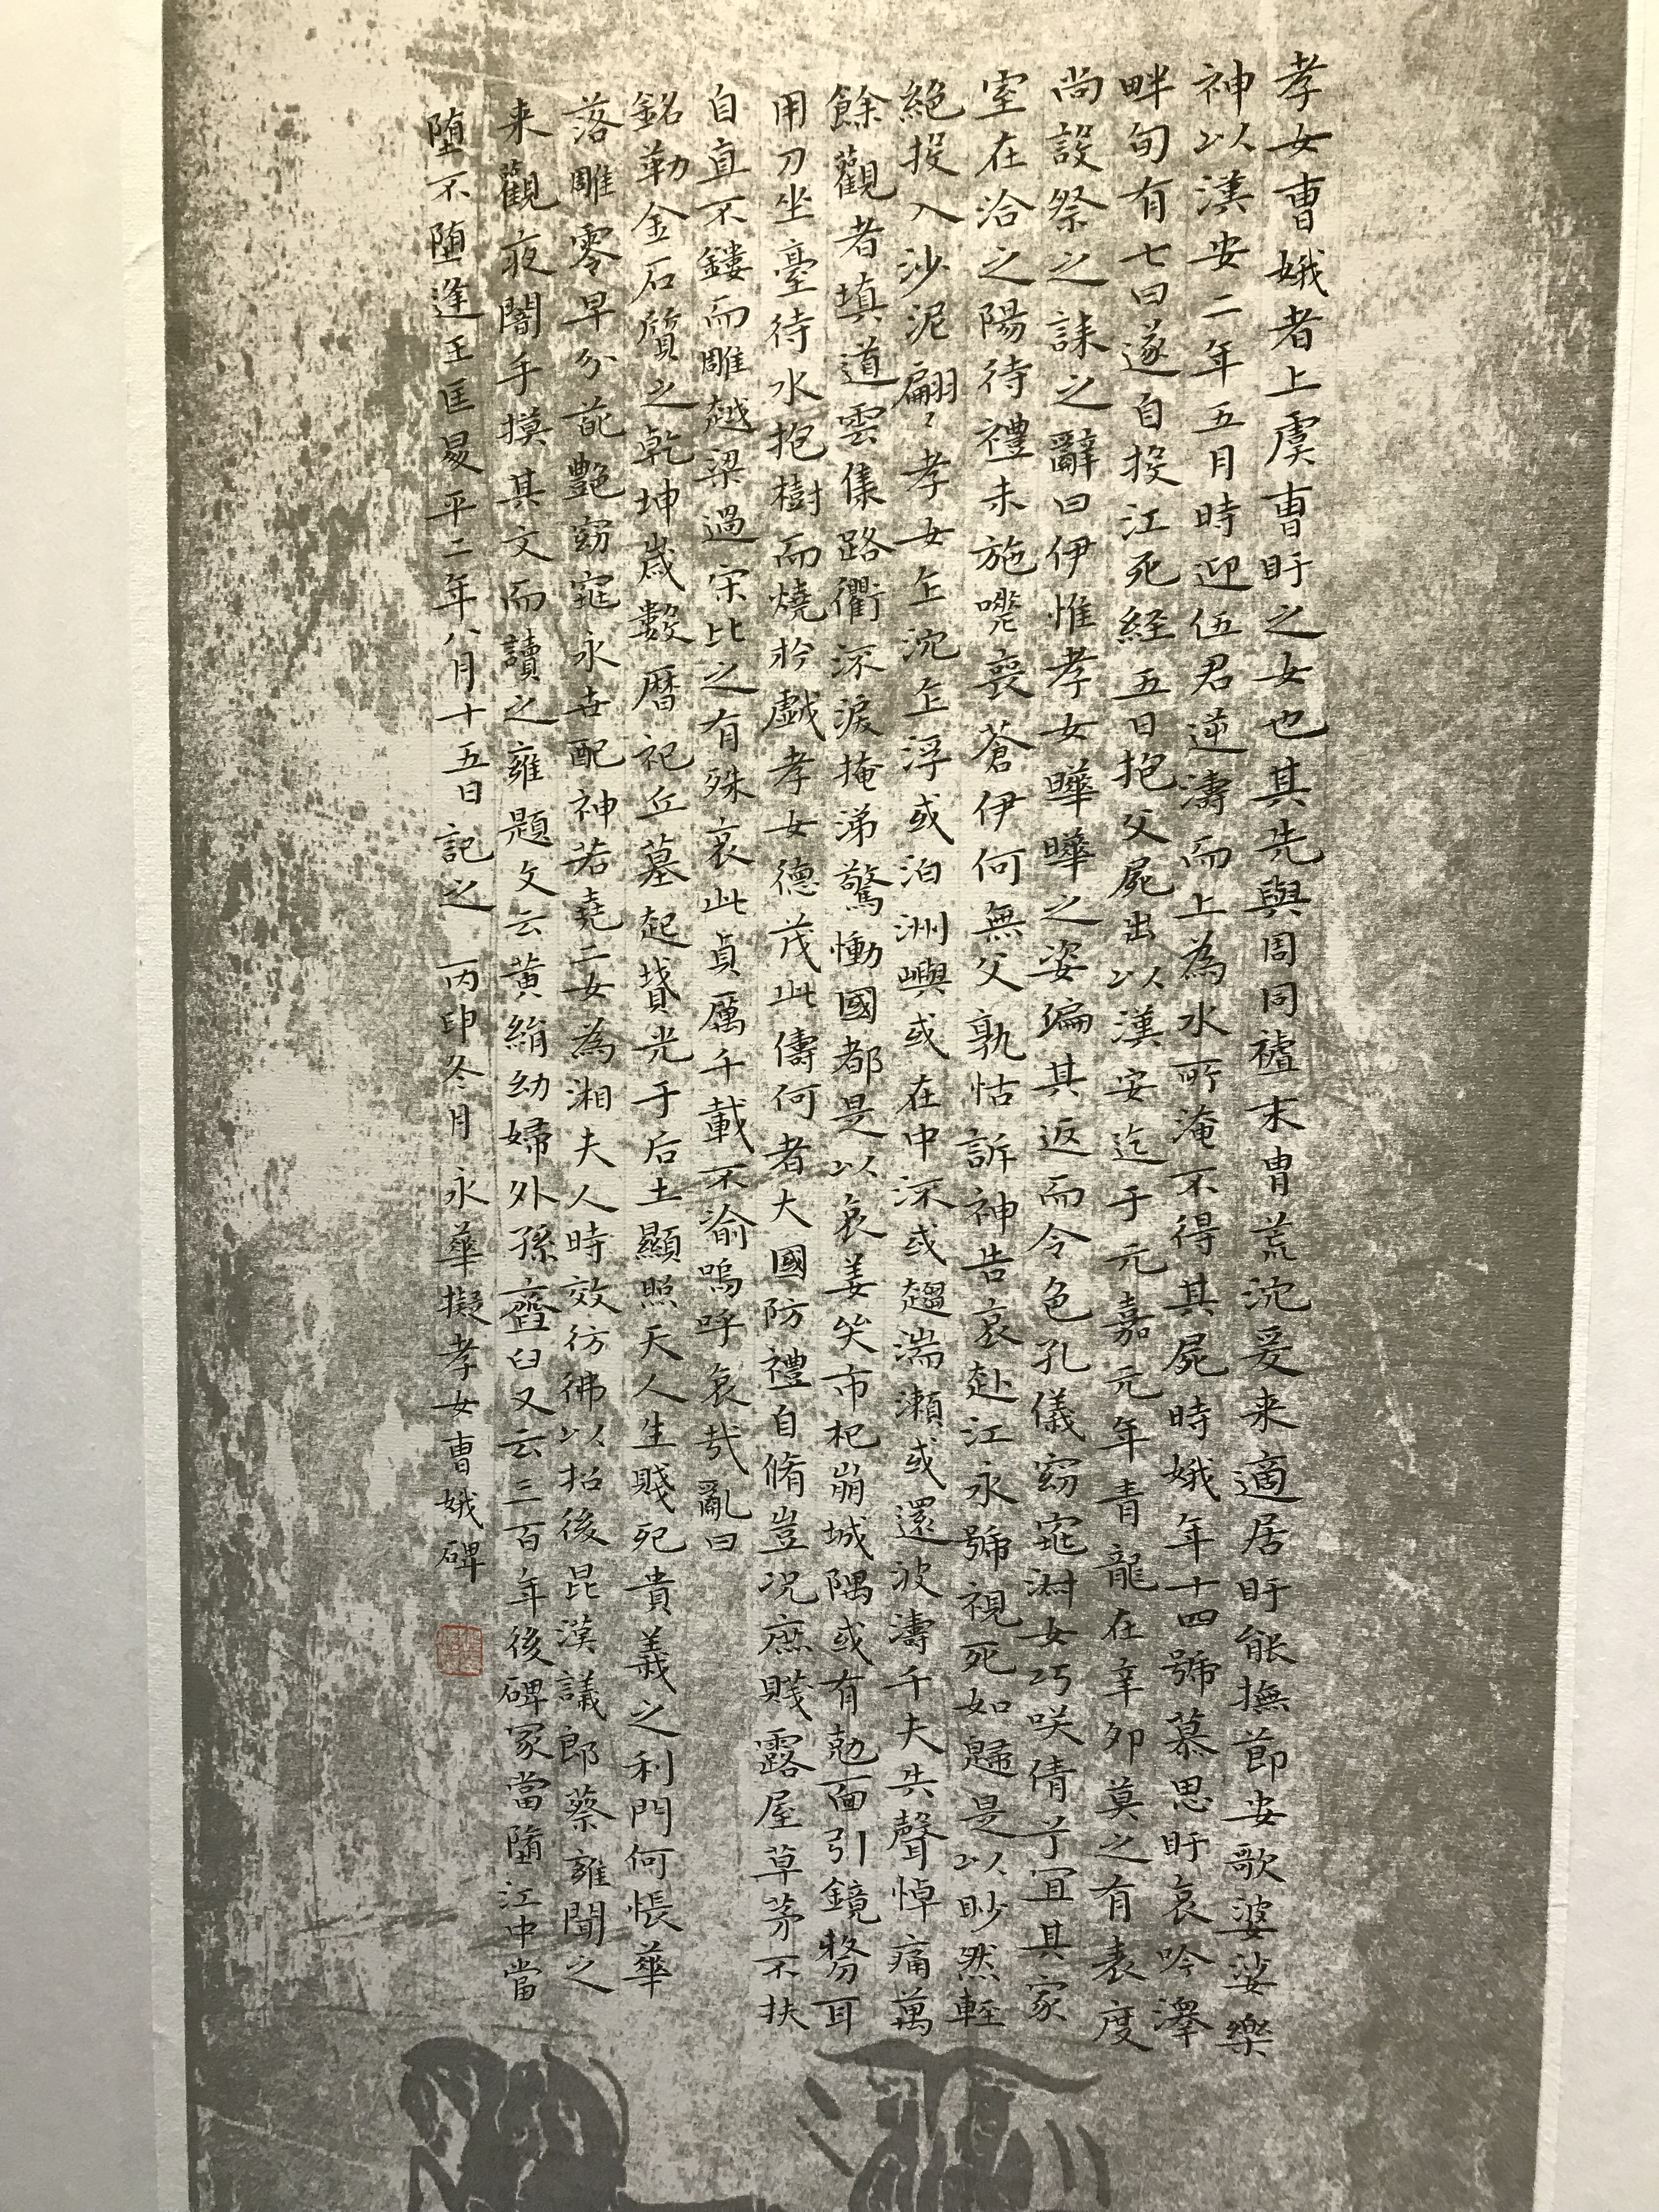 孝女曹娥者上虞曹盱之女也其先與周同祖末胄荒沈爰来適居盱能撫節安歌婆娑樂
神以漢安二年五月時迎伍君逆濤而上為水所淹不得其屍時娥年十四號慕思盱哀吟澤
畔旬有七日遂自投江死経五日抱父屍出以漢安迄于元嘉元年青龍在辛卯莫之有表度
尚設祭之誄之辭曰伊惟孝女曄曄之姿偏其返而令色孔儀窈窕淑女巧咲倩兮宜其家
室在洽之陽待禮未施嗟喪蒼伊何無父孰怙訴神告哀赴江永號視死如歸是以眇然輕
絕投入沙泥翩〻孝女乍沈乍浮或泊洲嶼或在中流或趨湍瀨或還波濤千夫失聲悼痛萬
餘觀者填道雲集路衢流淚掩涕驚慟國都是以哀姜哭市杞崩城隅或有剋面引鏡剺耳
用刀坐臺待水抱樹而燒扵戯孝女德茂此儔何者大國防禮自脩豈況庶賤露屋草茅不扶
自直不鏤而雕越梁過宋比之有殊哀此貞厲千載不渝嗚呼哀哉亂曰
銘勒金石質之乾坤歲數暦祀丘墓起墳光于后土顯照天人生賤死貴義之利門何悵華
落雕零早分葩艷窈窕永世配神若堯二女為湘夫人時效彷彿以招後昆漢議郎蔡雍聞之
来觀夜闇手摸其文而讀之雍題文云黄絹幼婦外孫齏臼又云三百年後碑冢當墮江中當
墮不墮逢王匡昜平二年八月十五日記之 丙申冬月 永華擬孝女曹娥碑